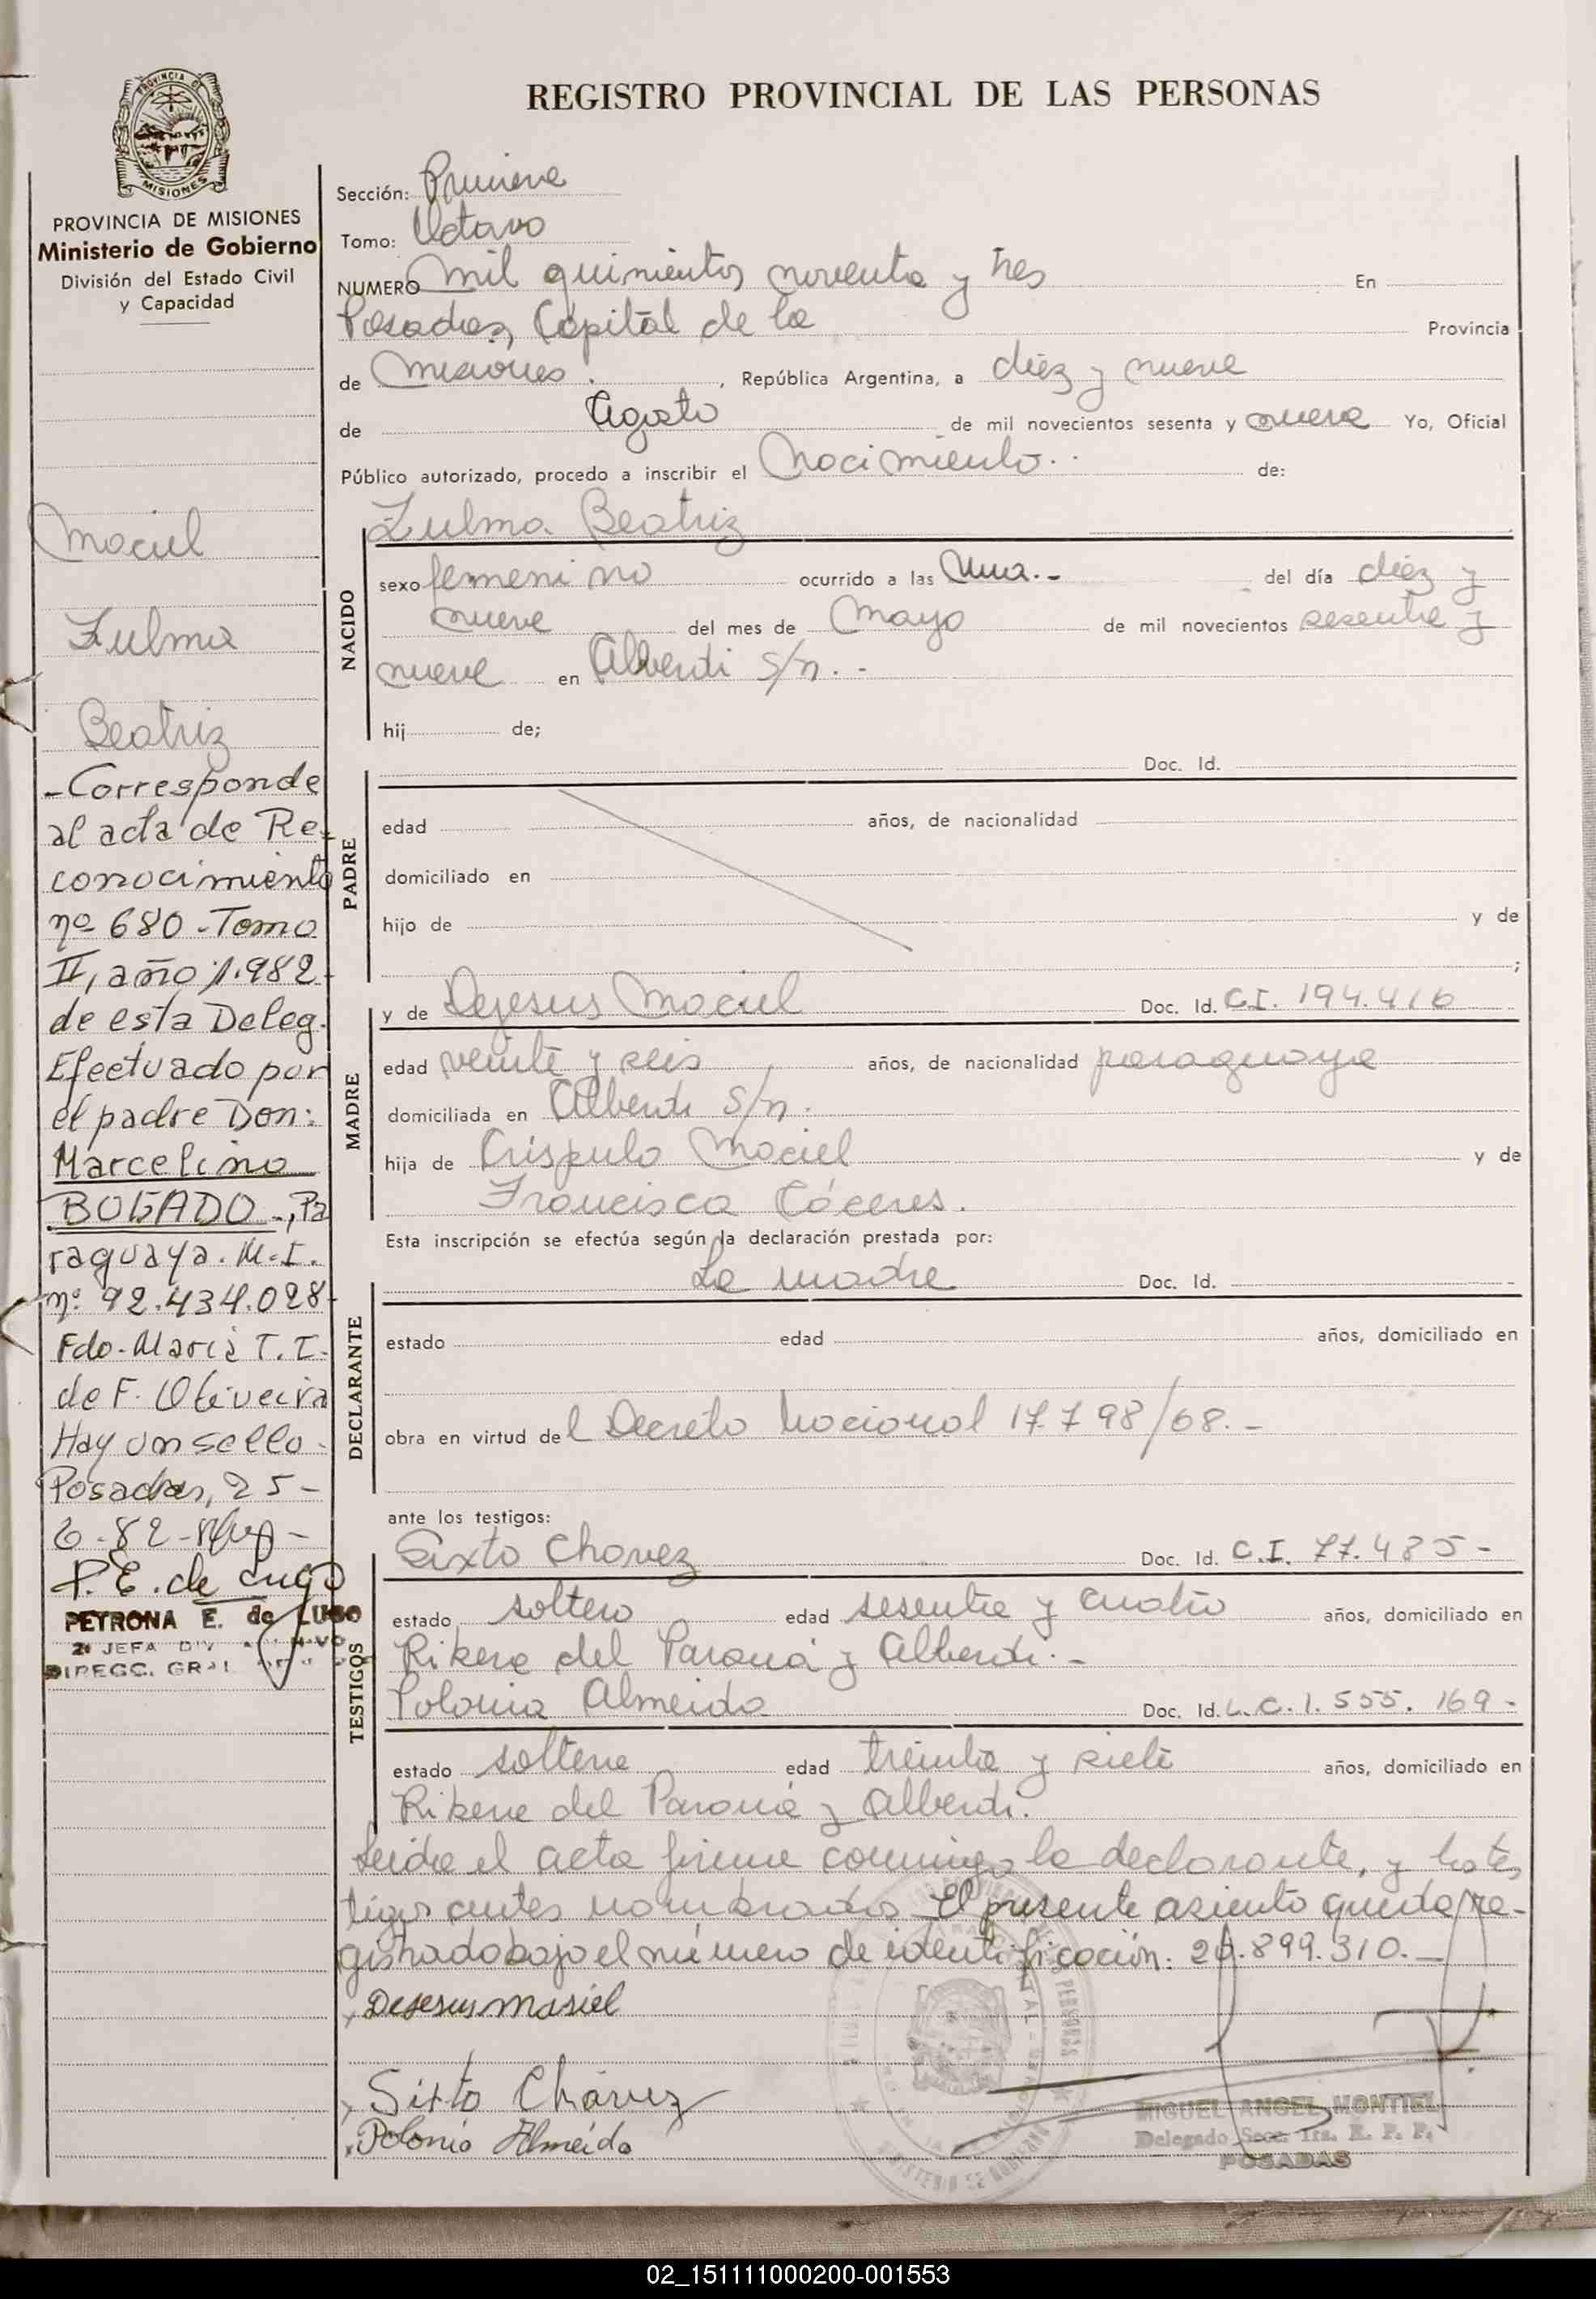 REGISTRO PROVINCIAL DE LAS PERSONAS
PROVINCIA DE
MISIONES
PROVINCIA DE MISIONES
Ministerio de Gobierno
División del Estado Civil
y Capacidad
Maciel
Zulma
Beatriz
-Corresponde
al acta de Re-
conocimiento
nº 680-Tomo
II, año 1.982
de esta Deleg.
Efectuado por
el padre Don:
Marcelino
BOGADO-, Pa
raguaya. M.I.
nº 92.434.028
Fdo-María T. I.
de F. Oliveira
Hay un sello-
Posadas, 25-
6-82-
P. E. de Lugo
PETRONA E. de LUGO
JEFA DIV
DIRECC. GRAL
Sección: Primera
Tomo: Octavo
NUMERO Mil quinientos noventa y tres En
Posadas, Capital de la Provincia
de Misiones. , República Argentina, a diez y nueve
de Agosto de mil novecientos sesenta y nueve Yo, Oficial
Público autorizado, procedo a inscribir el Nacimiento.. de:
Zulma Beatriz
NACIDO
sexo femenino ocurrido a las Una.- del día diez y
nueve del mes de Mayo de mil novecientos sesenta y
nueve en Alberdi s/n.-
hij de;
Doc. Id.
PADRE
edad años, de nacionalidad
domiciliado en
hijo de y de
;
MADRE
y de Dejesus Maciel Doc. Id. C.I. 194.416
edad veinte y seis años, de nacionalidad paraguaya
domiciliada en Alberdi s/n.
hija de Crispulo Maciel y de
Francisca Cáceres.
Esta inscripción se efectúa según la declaración prestada por:
La madre Doc. Id.
DECLARANTE
estado edad años, domiciliado en
obra en virtud del Decreto Nacional 17.798/68.-
ante los testigos:
Sixto Chavez Doc. Id. C.I. 77.485-
TESTIGOS
estado soltero edad sesenta y cuatro años, domiciliado en
Rivera del Paraná y Alberdi.-
Polonia Almeida Doc. Id. L.C. 1.555.169-
estado soltera edad treinta y siete años, domiciliado en
Rivera del Paraná y Alberdi.
Leída el acta firma conmigo la declarante, y los tes
tigos antes nombrados. El presente asiento queda re-
gistrado bajo el número de identificación: 20.899.310.-
Dejesus masiel
Sixto Chávez
Polonia Almeida
MIGUEL ANGEL MONTIEL
Delegado Secc. 1ra. R. P. P.
POSADAS
02_151111000200-001553